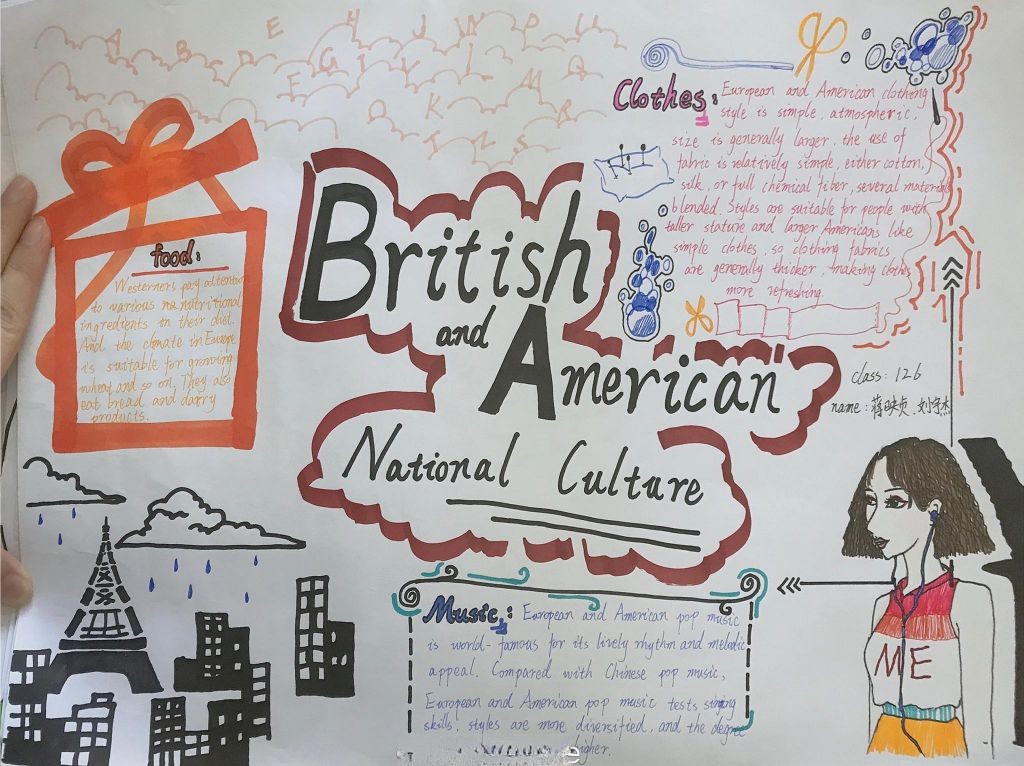 A B C D E F G H I J K L M N O P Q R S T U
British
and American
National Culture
food:
Westerners pay attention
to various nutritional
ingredients in their diet.
And the climate in Europe
is suitable for growing
wheat and so on, They also
eat bread and darry
products.
Clothes: European and American clothing
style is simple, atmospheric,
size is generally larger, the use of
fabric is relatively simple, either cotton,
silk, or full chemical fiber, several material
blended. Styles are suitable for people with
taller stature and larger Americans like
simple clothes, so clothing fabrics
are generally thicker, making clothes
more refreshing.
class: 126
name: 蒋映贞、刘宇杰
ME
Music: European and American pop music
is world-famous for its lively rhythm and melodic
appeal. Compared with Chinese pop music,
European and American pop music tests singing
skills, styles are more diversified, and the degree
higher.